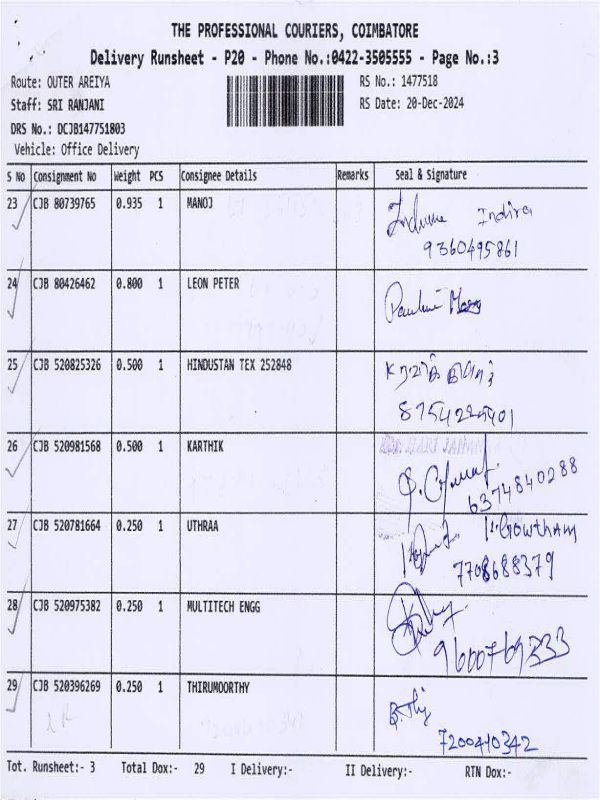 THE PROFESSIONAL COURIERS, COIMBATORE
Delivery Runsheet - P20 - Phone No.:0422-3505555 - Page No.:3
Route: OUTER AREIYA RS No.: 1477518
Staff: SRI RANJANI RS Date: 20-Dec-2024
DRS No.: DCJB147751803
Vehicle: Office Delivery
S No Consignment No Weight PCS Consignee Details Remarks Seal & Signature
23 CJB 80739765 0.935 1 MANOJ Indira
9360495861
24 CJB 80426462 0.800 1 LEON PETER
25 CJB 520825326 0.500 1 HINDUSTAN TEX 252848
26 CJB 520981568 0.500 1 KARTHIK
6374840288
27 CJB 520781664 0.250 1 UTHRAA Gowtham
7708688379
28 CJB 520975382 0.250 1 MULTITECH ENGG
9600769333
29 CJB 520396269 0.250 1 THIRUMOORTHY
7200410342
Tot. Runsheet:- 3 Total Dox:- 29 I Delivery:- II Delivery:- RTN Dox:-